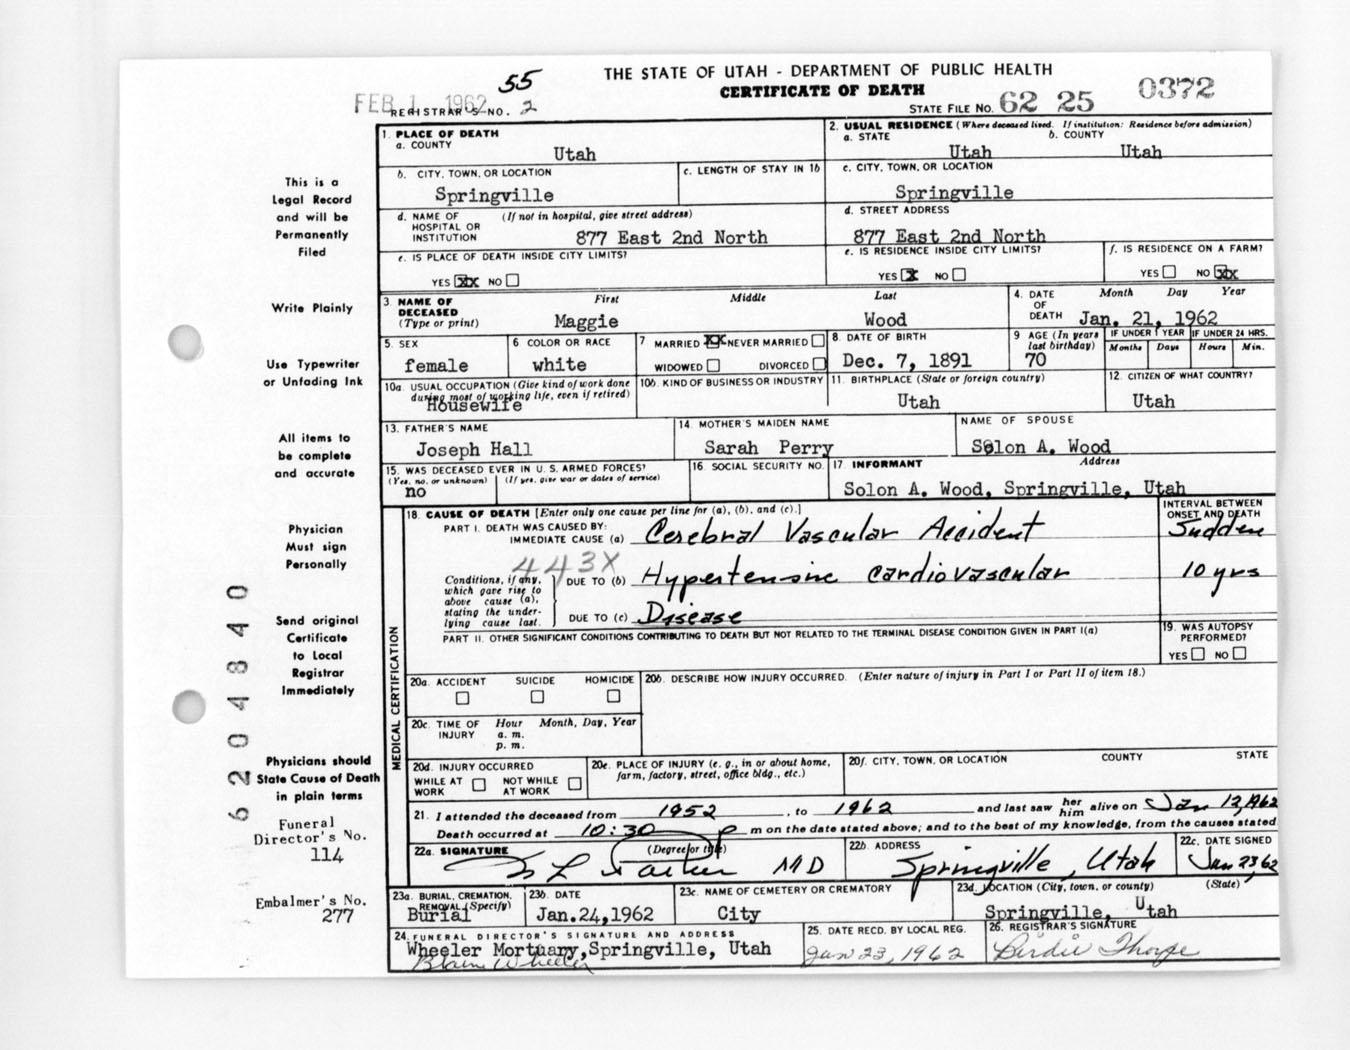 THE STATE OF UTAH - DEPARTMENT OF PUBLIC HEALTH
CERTIFICATE OF DEATH
FEB 1 1962
REGISTRAR'S NO. 55 2
STATE FILE NO. 62 25 0372
1. PLACE OF DEATH
a. COUNTY Utah
2. USUAL RESIDENCE (Where deceased lived. If institution: Residence before admission)
a. STATE Utah b. COUNTY Utah
b. CITY, TOWN, OR LOCATION Springville
c. LENGTH OF STAY IN 1b
c. CITY, TOWN, OR LOCATION Springville
d. NAME OF HOSPITAL OR INSTITUTION (If not in hospital, give street address) 877 East 2nd North
d. STREET ADDRESS 877 East 2nd North
e. IS PLACE OF DEATH INSIDE CITY LIMITS? YES XX NO
e. IS RESIDENCE INSIDE CITY LIMITS? YES X NO
f. IS RESIDENCE ON A FARM? YES NO XX
3. NAME OF DECEASED (Type or print) First Maggie Middle Last Wood
4. DATE OF DEATH Month Day Year Jan. 21, 1962
5. SEX female
6 COLOR OR RACE white
7 MARRIED XX NEVER MARRIED
WIDOWED DIVORCED
8. DATE OF BIRTH Dec. 7, 1891
9 AGE (In years last birthday) 70
IF UNDER 1 YEAR Months Days
IF UNDER 24 HRS. Hours Min.
10a. USUAL OCCUPATION (Give kind of work done during most of working life, even if retired) Housewife
10b. KIND OF BUSINESS OR INDUSTRY
11. BIRTHPLACE (State or foreign country) Utah
12. CITIZEN OF WHAT COUNTRY? Utah
13. FATHER'S NAME Joseph Hall
14. MOTHER'S MAIDEN NAME Sarah Perry
NAME OF SPOUSE Solon A. Wood
15. WAS DECEASED EVER IN U. S. ARMED FORCES?
(Yes, no, or unknown) no (If yes, give war or dates of service)
16. SOCIAL SECURITY NO.
17. INFORMANT Address
Solon A. Wood, Springville, Utah
MEDICAL CERTIFICATION
18. CAUSE OF DEATH [Enter only one cause per line for (a), (b), and (c).]
INTERVAL BETWEEN ONSET AND DEATH
PART I. DEATH WAS CAUSED BY:
IMMEDIATE CAUSE (a) Cerebral Vascular Accident Sudden
443X
Conditions, if any, which gave rise to above cause (a), stating the underlying cause last.
DUE TO (b) Hypertensive Cardiovascular 10 yrs
DUE TO (c) Disease
PART II. OTHER SIGNIFICANT CONDITIONS CONTRIBUTING TO DEATH BUT NOT RELATED TO THE TERMINAL DISEASE CONDITION GIVEN IN PART I(a)
19. WAS AUTOPSY PERFORMED? YES NO
20a. ACCIDENT SUICIDE HOMICIDE
20b. DESCRIBE HOW INJURY OCCURRED. (Enter nature of injury in Part I or Part II of item 18.)
20c. TIME OF INJURY Hour a. m. p. m. Month, Day, Year
20d. INJURY OCCURRED
WHILE AT WORK NOT WHILE AT WORK
20e. PLACE OF INJURY (e. g., in or about home, farm, factory, street, office bldg., etc.)
20f. CITY, TOWN, OR LOCATION COUNTY STATE
21. I attended the deceased from 1952, to 1962 and last saw her him alive on Jan 12, 1962
Death occurred at 10:30 p m on the date stated above; and to the best of my knowledge, from the causes stated
22a. SIGNATURE (Degree or title) MD
22b. ADDRESS Springville, Utah
22c. DATE SIGNED Jan 23, 62
23a. BURIAL, CREMATION, REMOVAL (Specify) Burial
23b. DATE Jan.24,1962
23c. NAME OF CEMETERY OR CREMATORY City
23d. LOCATION (City, town, or county) (State)
Springville, Utah
24. FUNERAL DIRECTOR'S SIGNATURE AND ADDRESS
Wheeler Mortuary, Springville, Utah
Blain Wheeler
25. DATE RECD. BY LOCAL REG. Jan 23, 1962
26. REGISTRAR'S SIGNATURE Birdie Thorpe
This is a
Legal Record
and will be
Permanently
Filed
Write Plainly
Use Typewriter
or Unfading Ink
All items to
be complete
and accurate
Physician
Must sign
Personally
Send original
Certificate
to Local
Registrar
Immediately
Physicians should
State Cause of Death
in plain terms
Funeral
Director's No.
114
Embalmer's No.
277
6204840